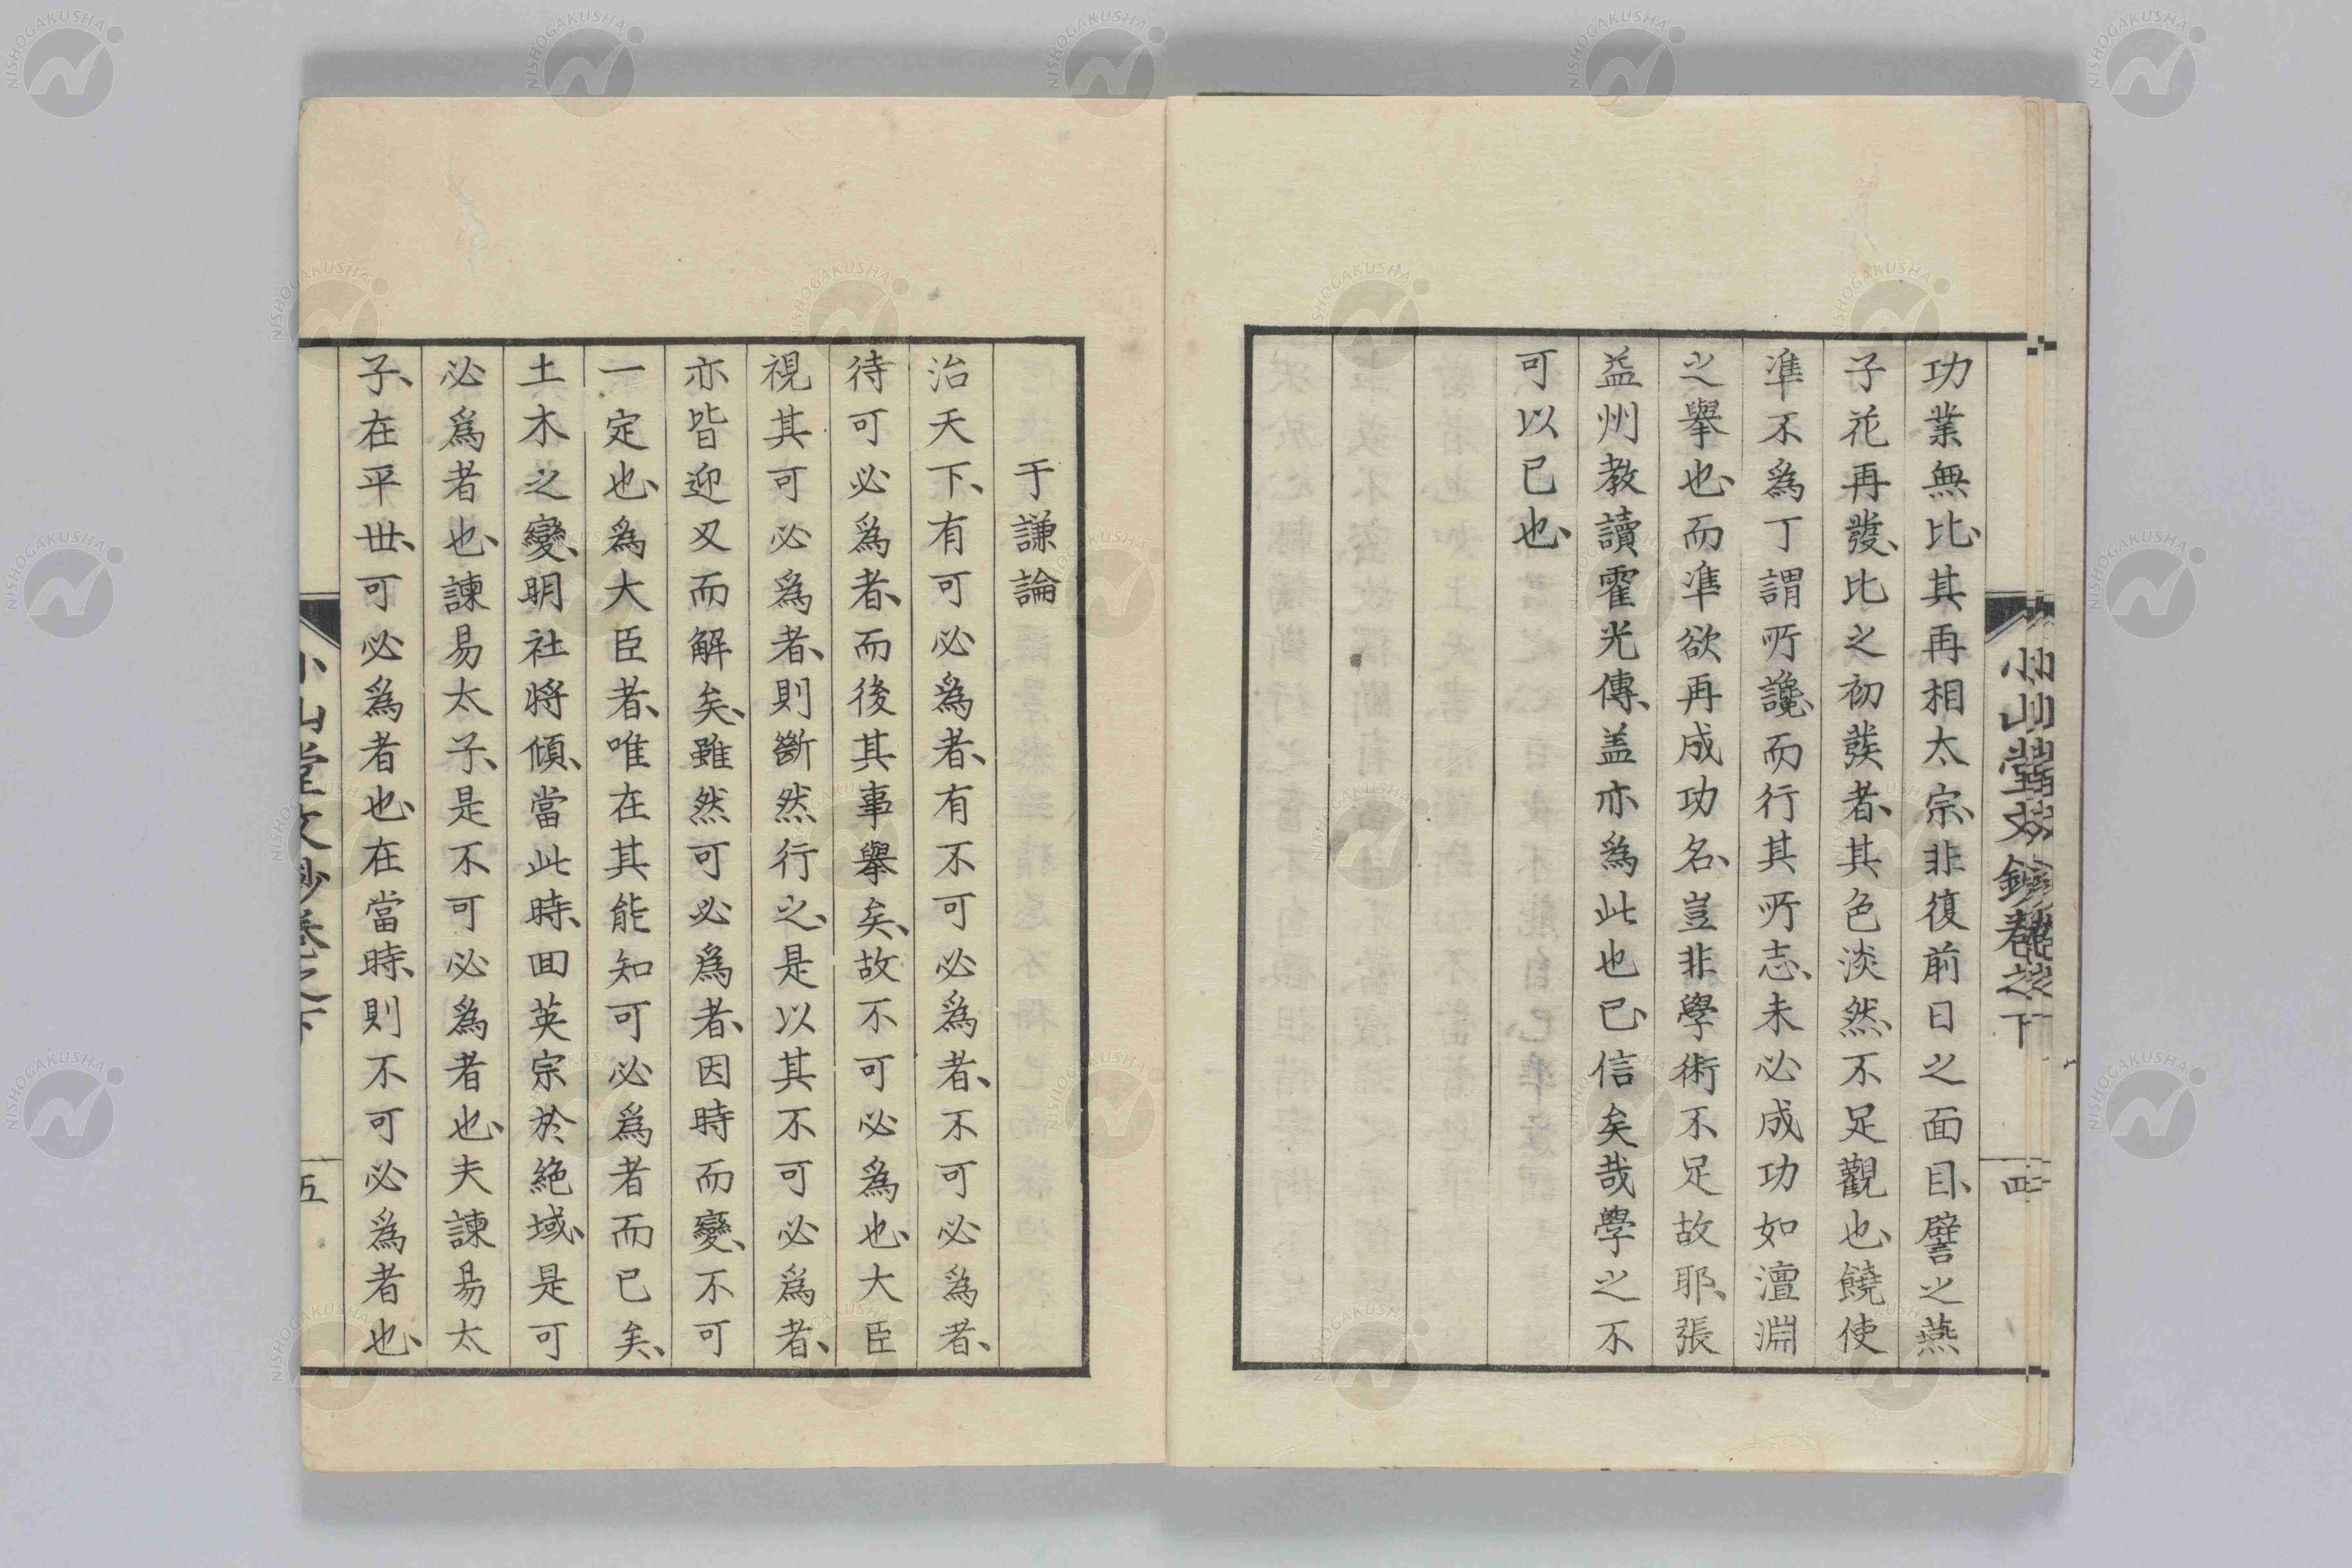 小山堂文鈔卷之下
四
功業無比、其再相太宗、非復前日之面目、譬之燕
子花再發、比之初發者、其色淡然、不足觀也、饒使
準不為丁謂所讒、而行其所志、未必成功如澶淵
之舉也、而準欲再成功名、豈非學術不足故耶、張
益州教讀霍光傳、盖亦為此也已、信矣哉學之不
可以已也、
于謙論
治天下、有可必為者、有不可必為者、不可必為者、
待可必為者、而後其事舉矣、故不可必為也、大臣
視其可必為者、則斷然行之、是以其不可必為者、
亦皆迎刃而解矣、雖然可必為者、因時而變、不可
一定也、為大臣者、唯在其能知可必為者而已矣、
土木之變、明社將傾、當此時、回英宗於絶域、是可
必為者也、諫易太子、是不可必為者也、夫諫易太
子、在平世、可必為者也、在當時、則不可必為者也、
小山堂文鈔卷之下
五
NISHOGAKUSHA